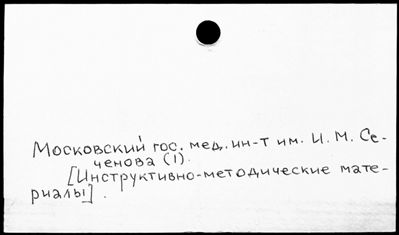 Московский гос. мед. ин-т им. И. М. Се-
ченова (1).
[Инструктивно-методические мате-
риалы].